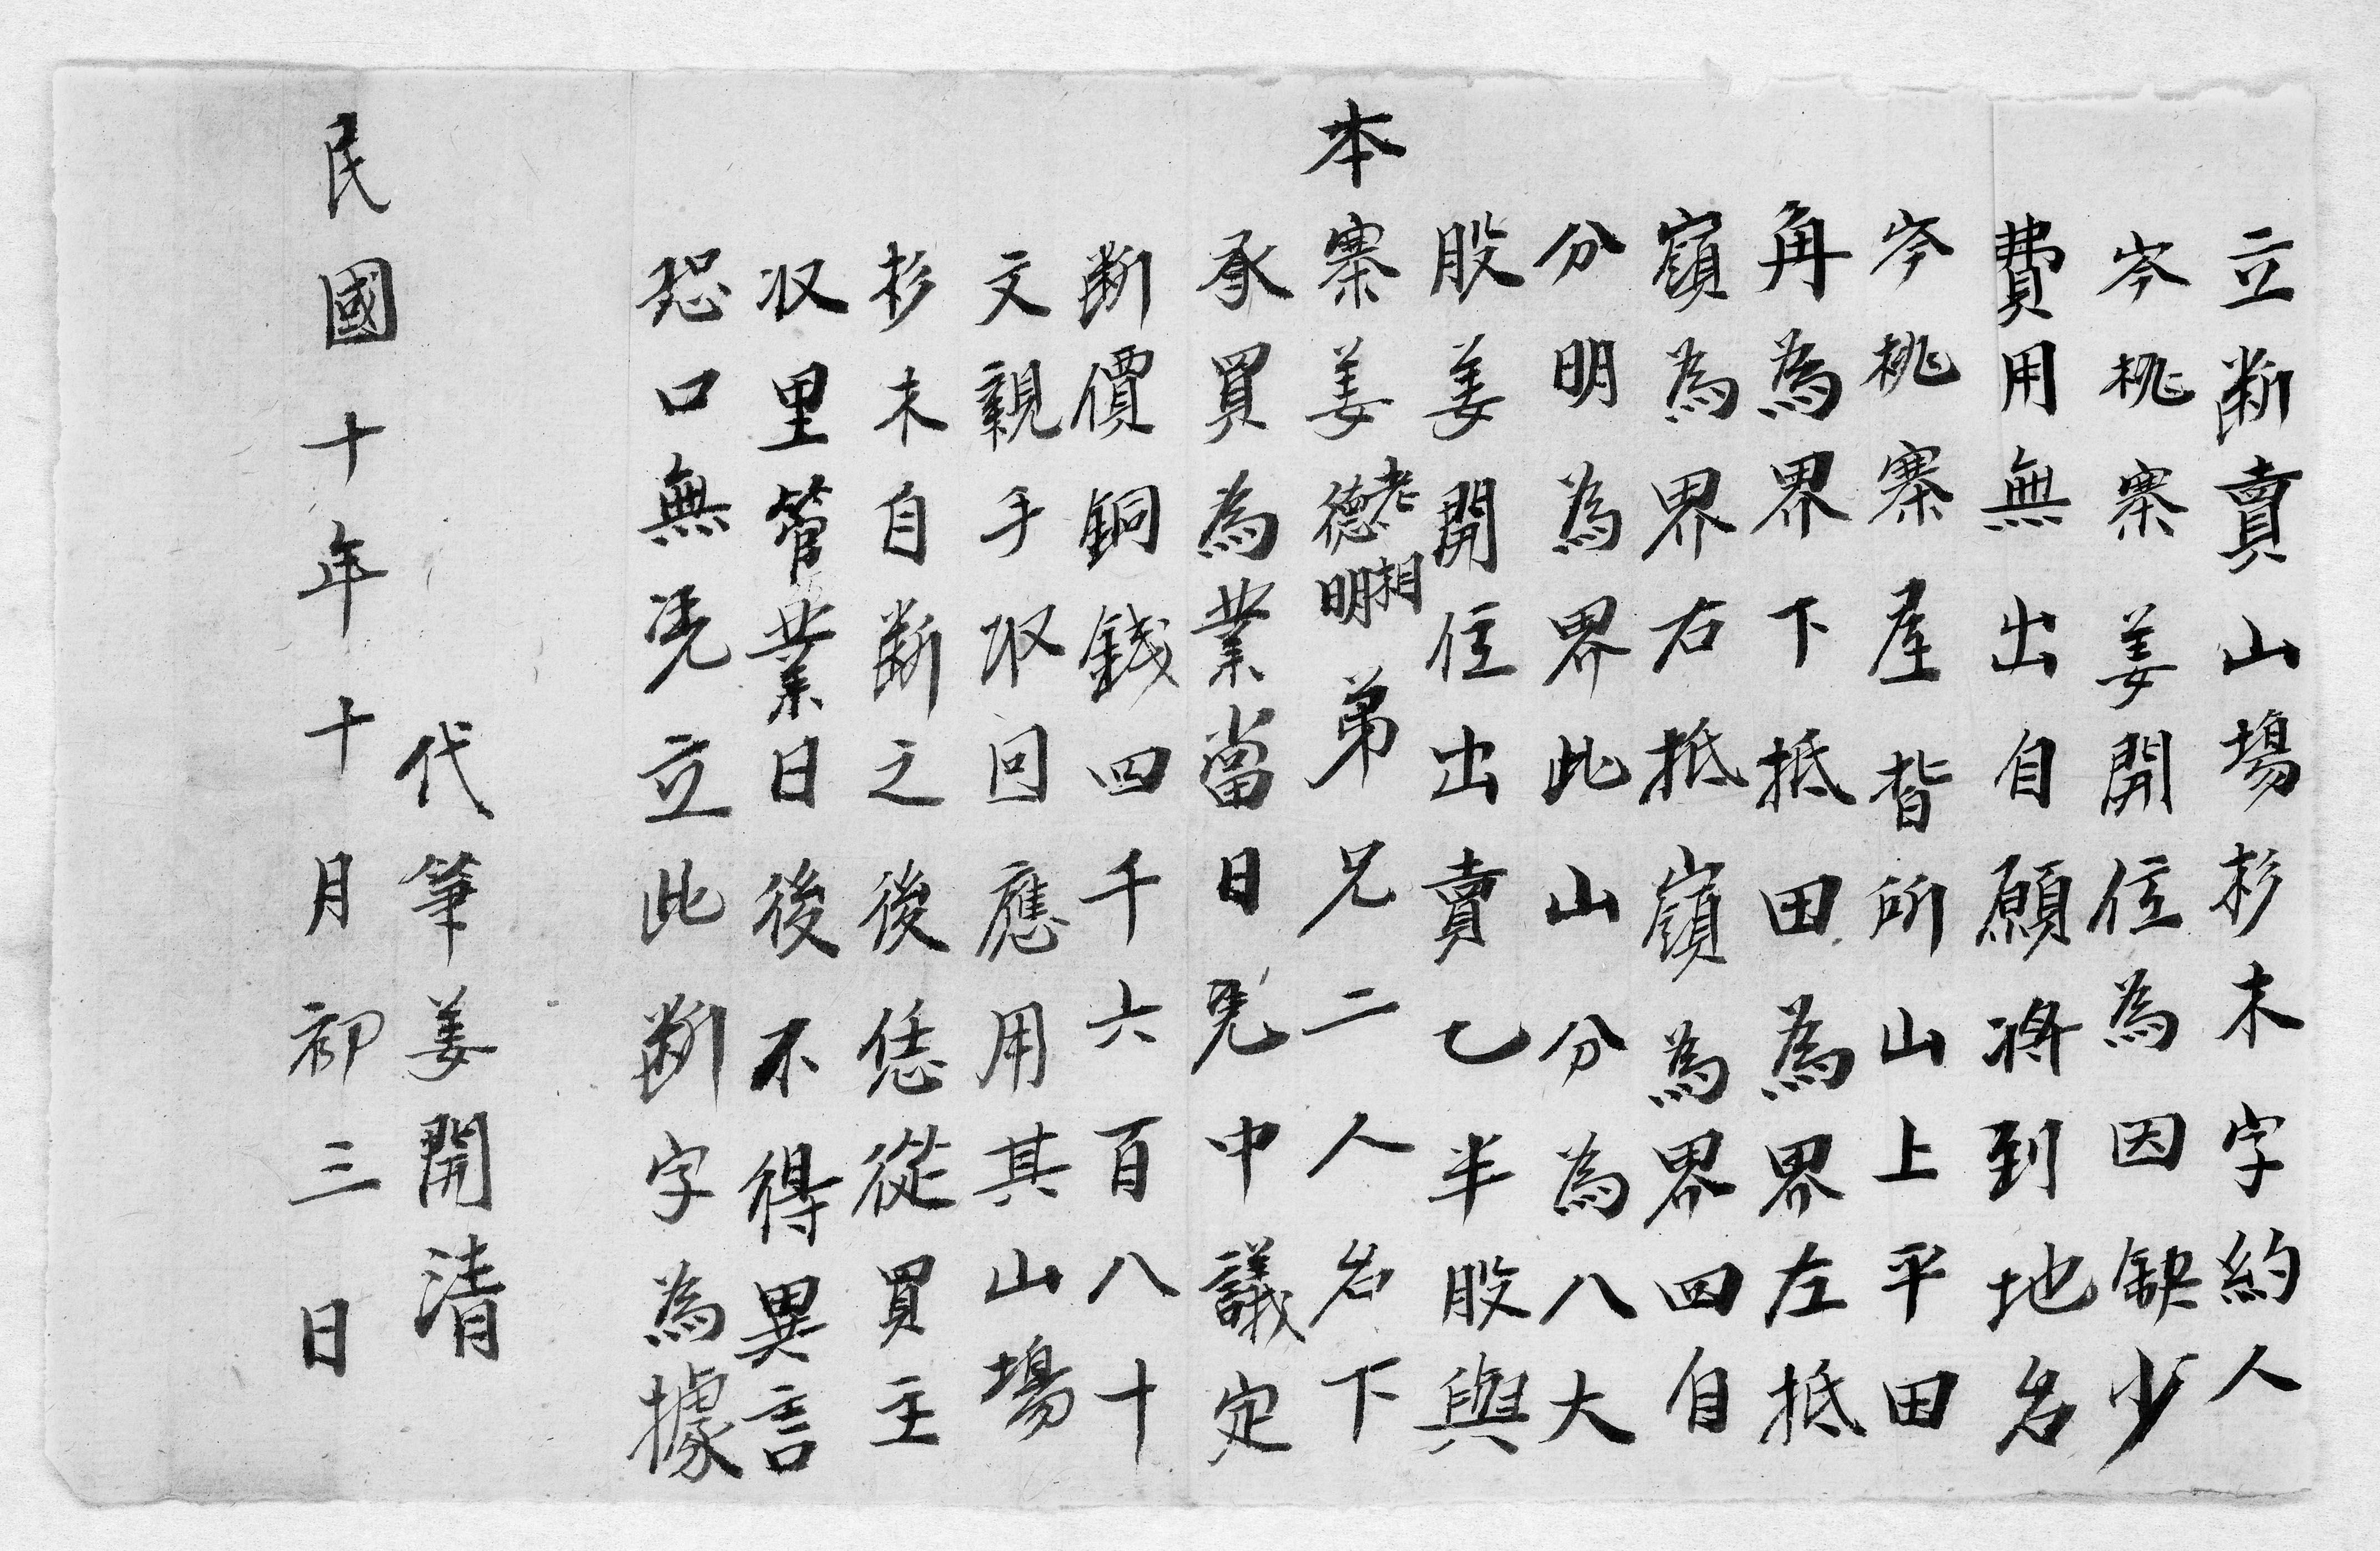 立断賣山場杉木字約人
岑桃寨姜開位為因缺少
費用無出自願将到地名
岑桃寨屋背所山上平田
角為界下抵田為界左抵
嶺為界右抵嶺為界四自
分明為界此山分為八大
股姜開位出賣乙半股與
本寨姜老相德明弟兄二人名下
承買為業當日凭中議定
断價銅錢四千六百八十
文親手收回應用其山場
杉木自断之後恁從買主
收里管業日後不得異言
恐口無凭立此断字為據
代筆姜開清
民國十年十月初三日